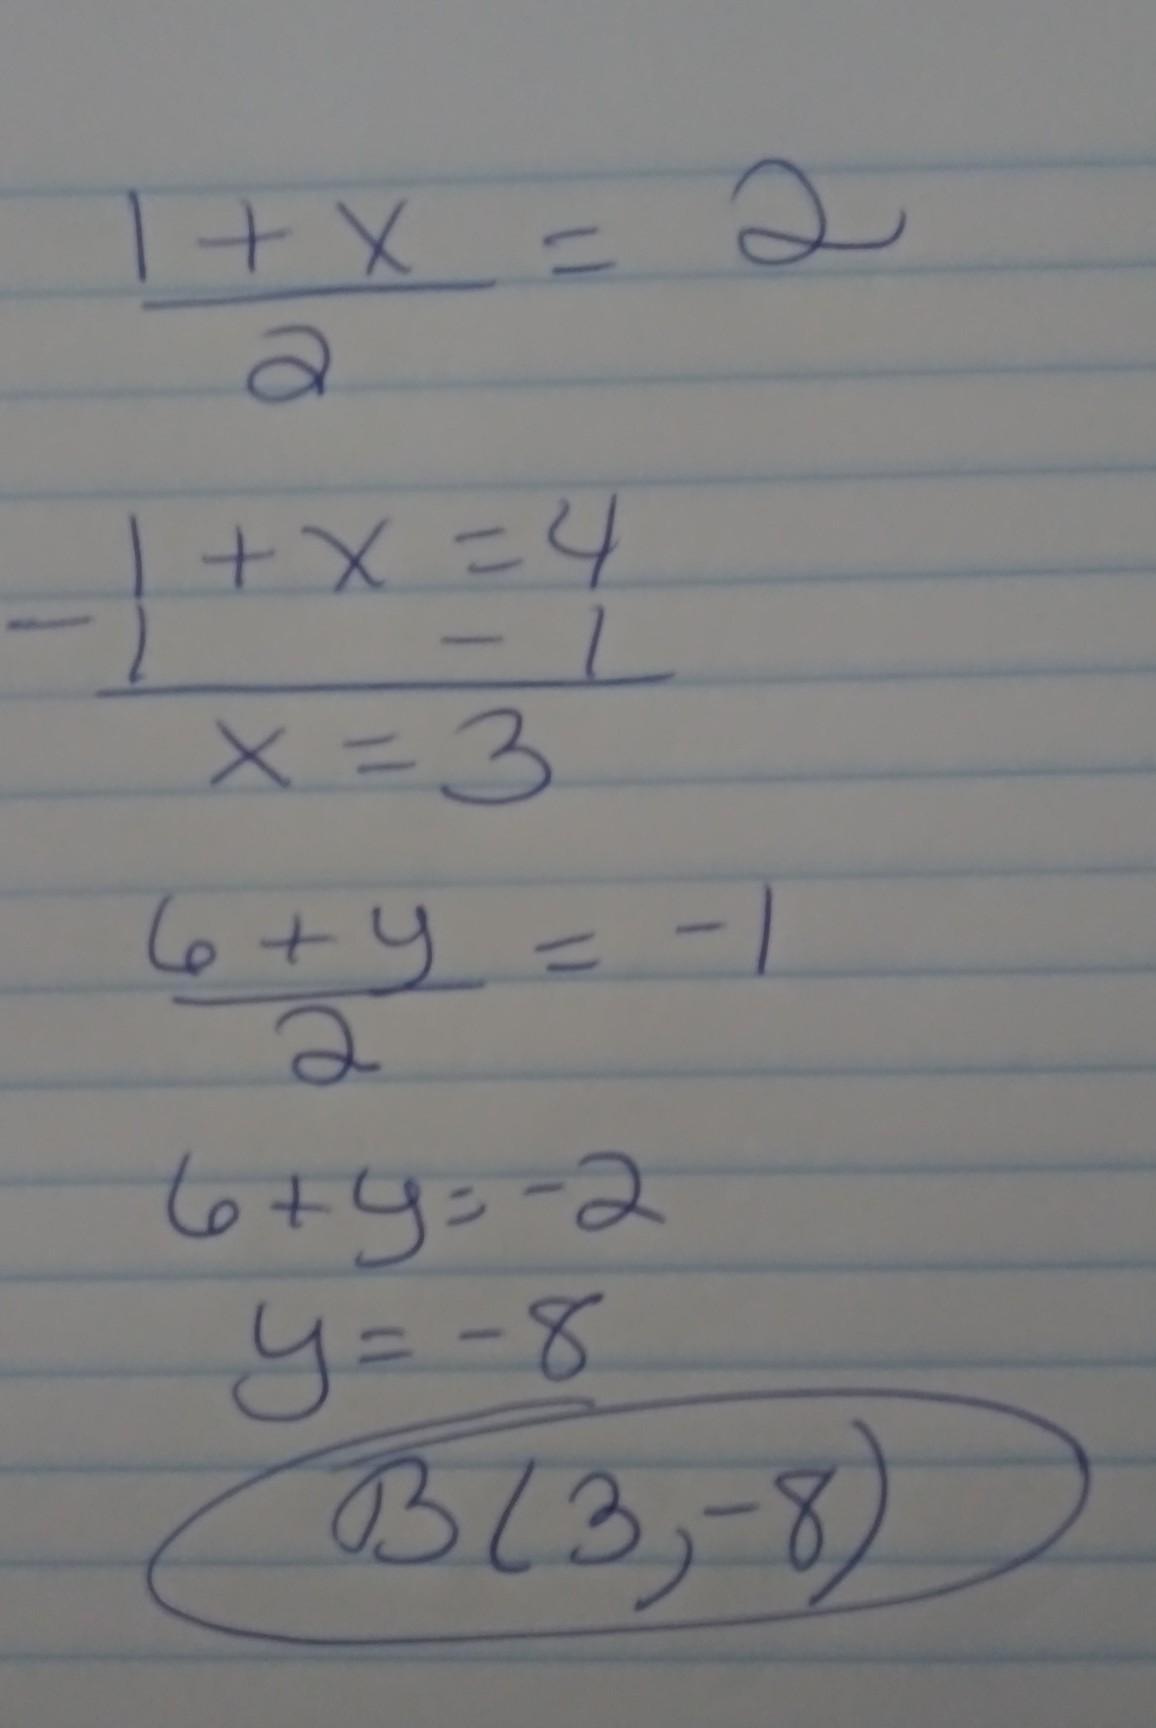 1 + x = 2
2
1 + x = 4
- 1 - 1
x = 3
6 + y = -1
2
6 + y = -2
y = -8
B(3,-8)